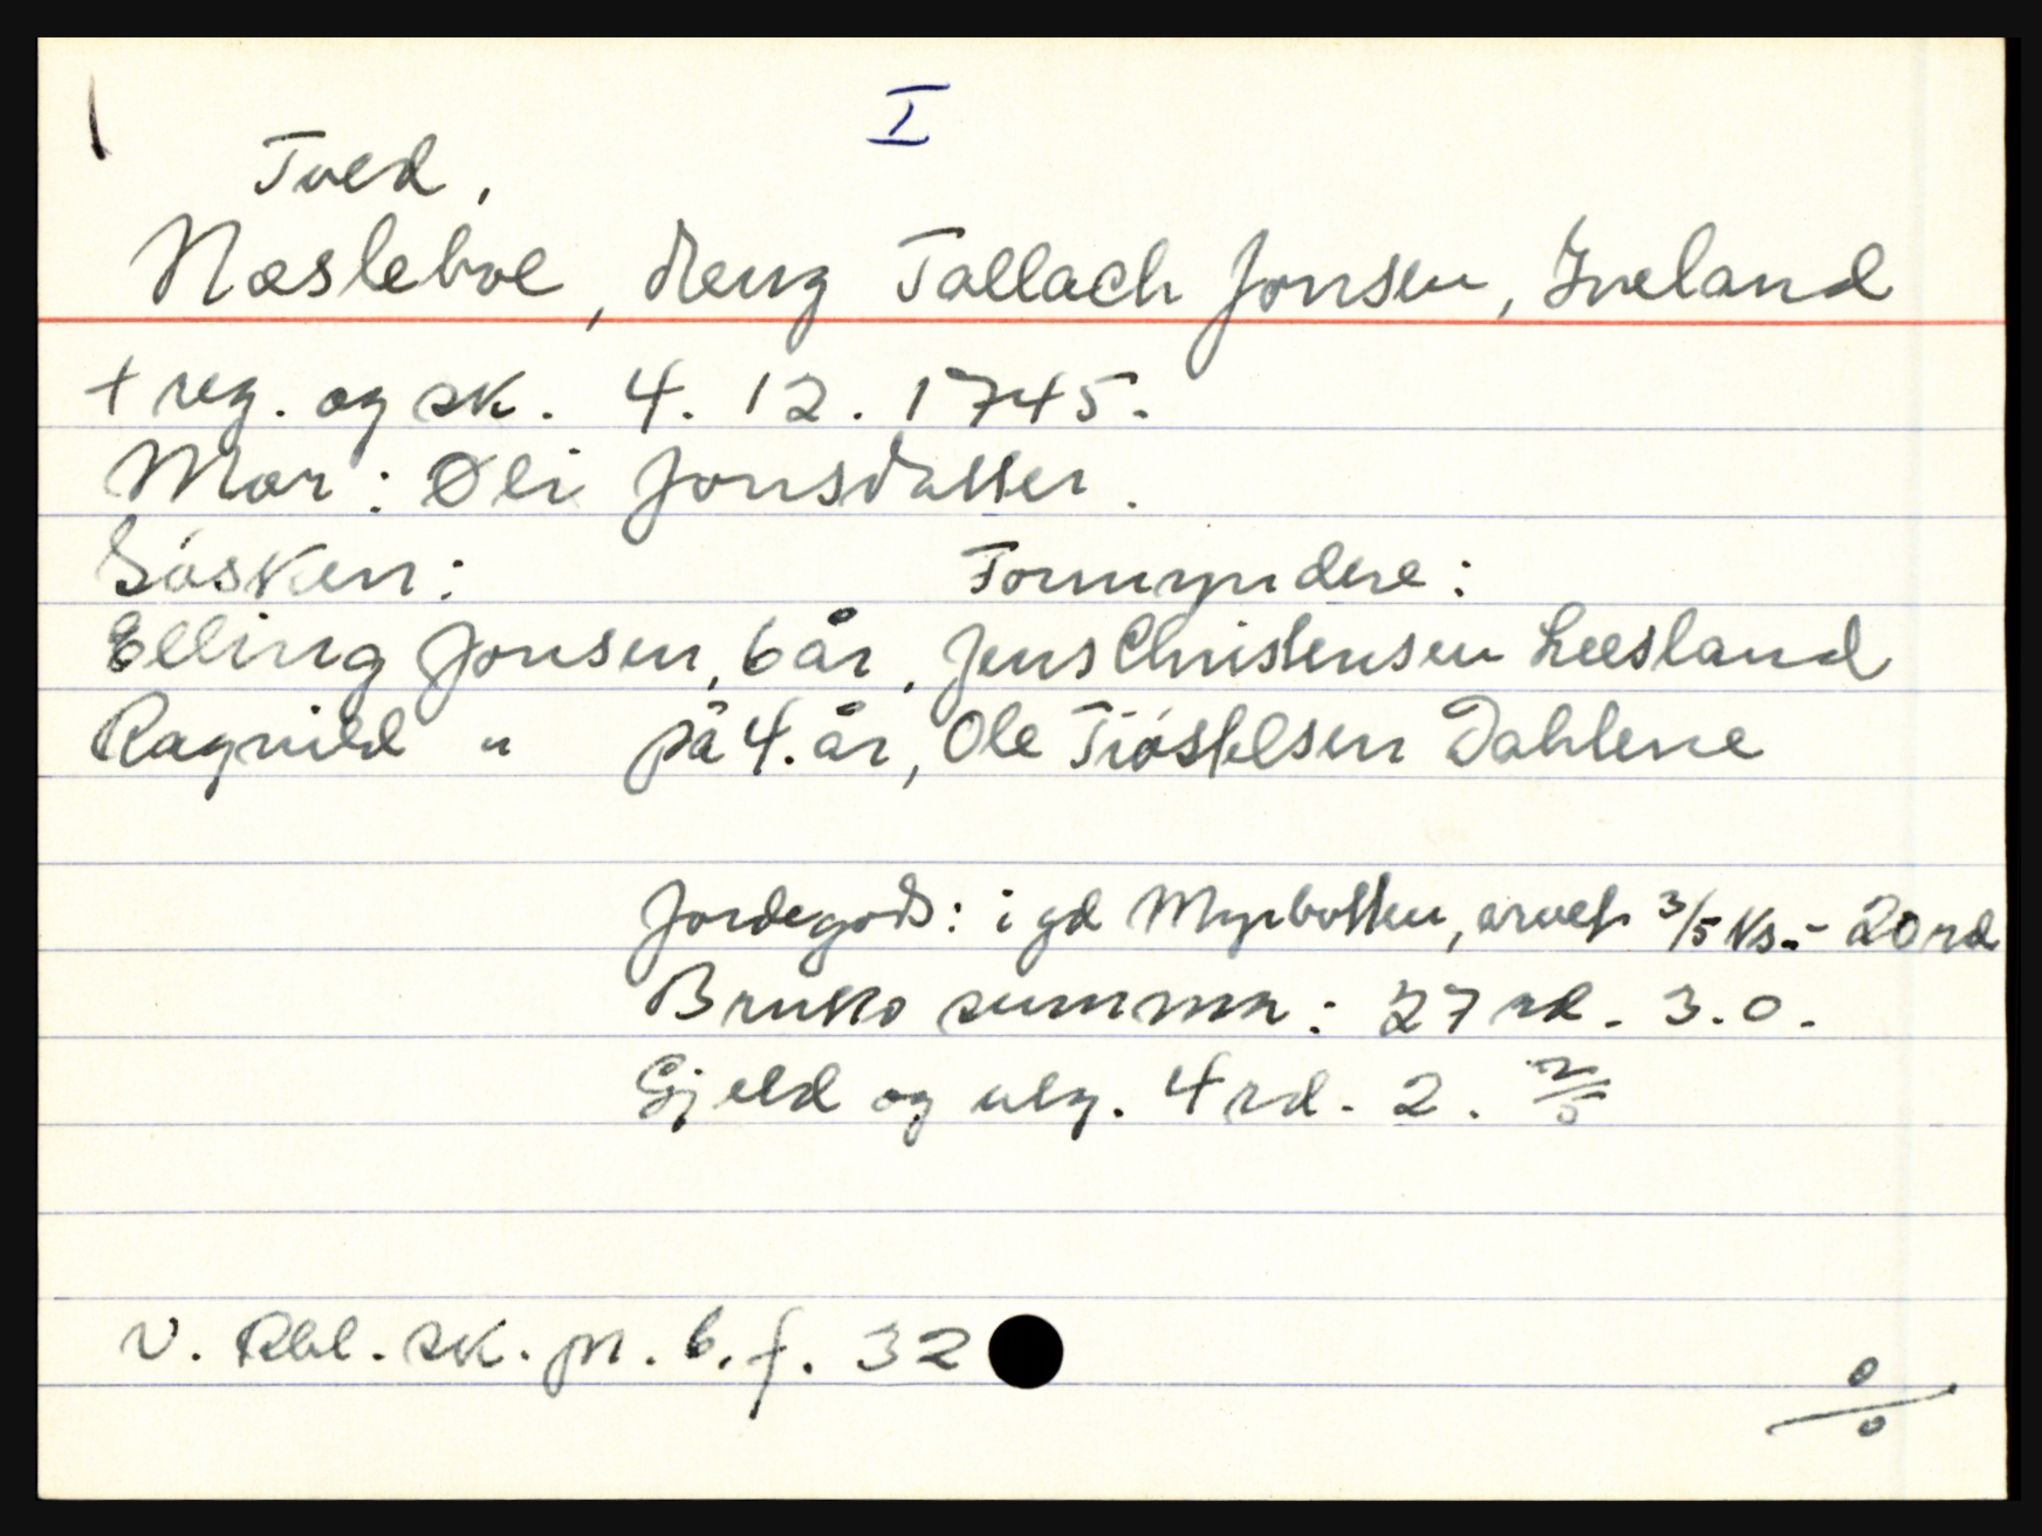 I
Tved,
Næslebøe, dreng Tallach Jonsen, Iveland
+ reg. og sk. 4. 12. 1745.
Mor: Øli Jonsdatter.
Søsken: Formyndere:
Elling Jonsen, 6 år, Jens Christensen Leesland
Ragnild " på 4. år, Ole Tiøstelsen Dahlene
Jordegods: i gd Myrbotten, arvet 3/5 ks. - 20 rd
Brutto summa: 27 rd. 3. 0.
Gjeld og utg. 4 rd. 2.
v. Rbl. sk. pr. 6. f. 32